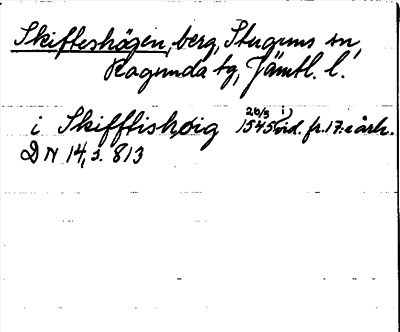 Skifteshögen, berg, Stuguns sn,
Ragunda tg, Jämtl. l.
i Skifftishoig 26/3 1545 i) vid. fr. 17:e årh.
DN 14, s. 813